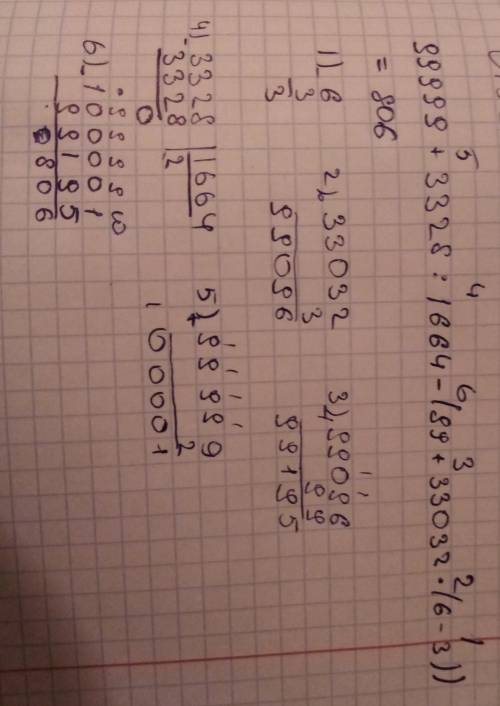 5 4 6 3 2 1
99999 + 3328 : 1664 - (99 + 33032 · (6 - 3))
= 806
1) - 6
3
3
2) x 33032
3
99096
3) + 99096
99
99195
4) - 3328 | 1664
3328 | 2
0
5) + 99999
2
100001
6) - 100001
99195
0806